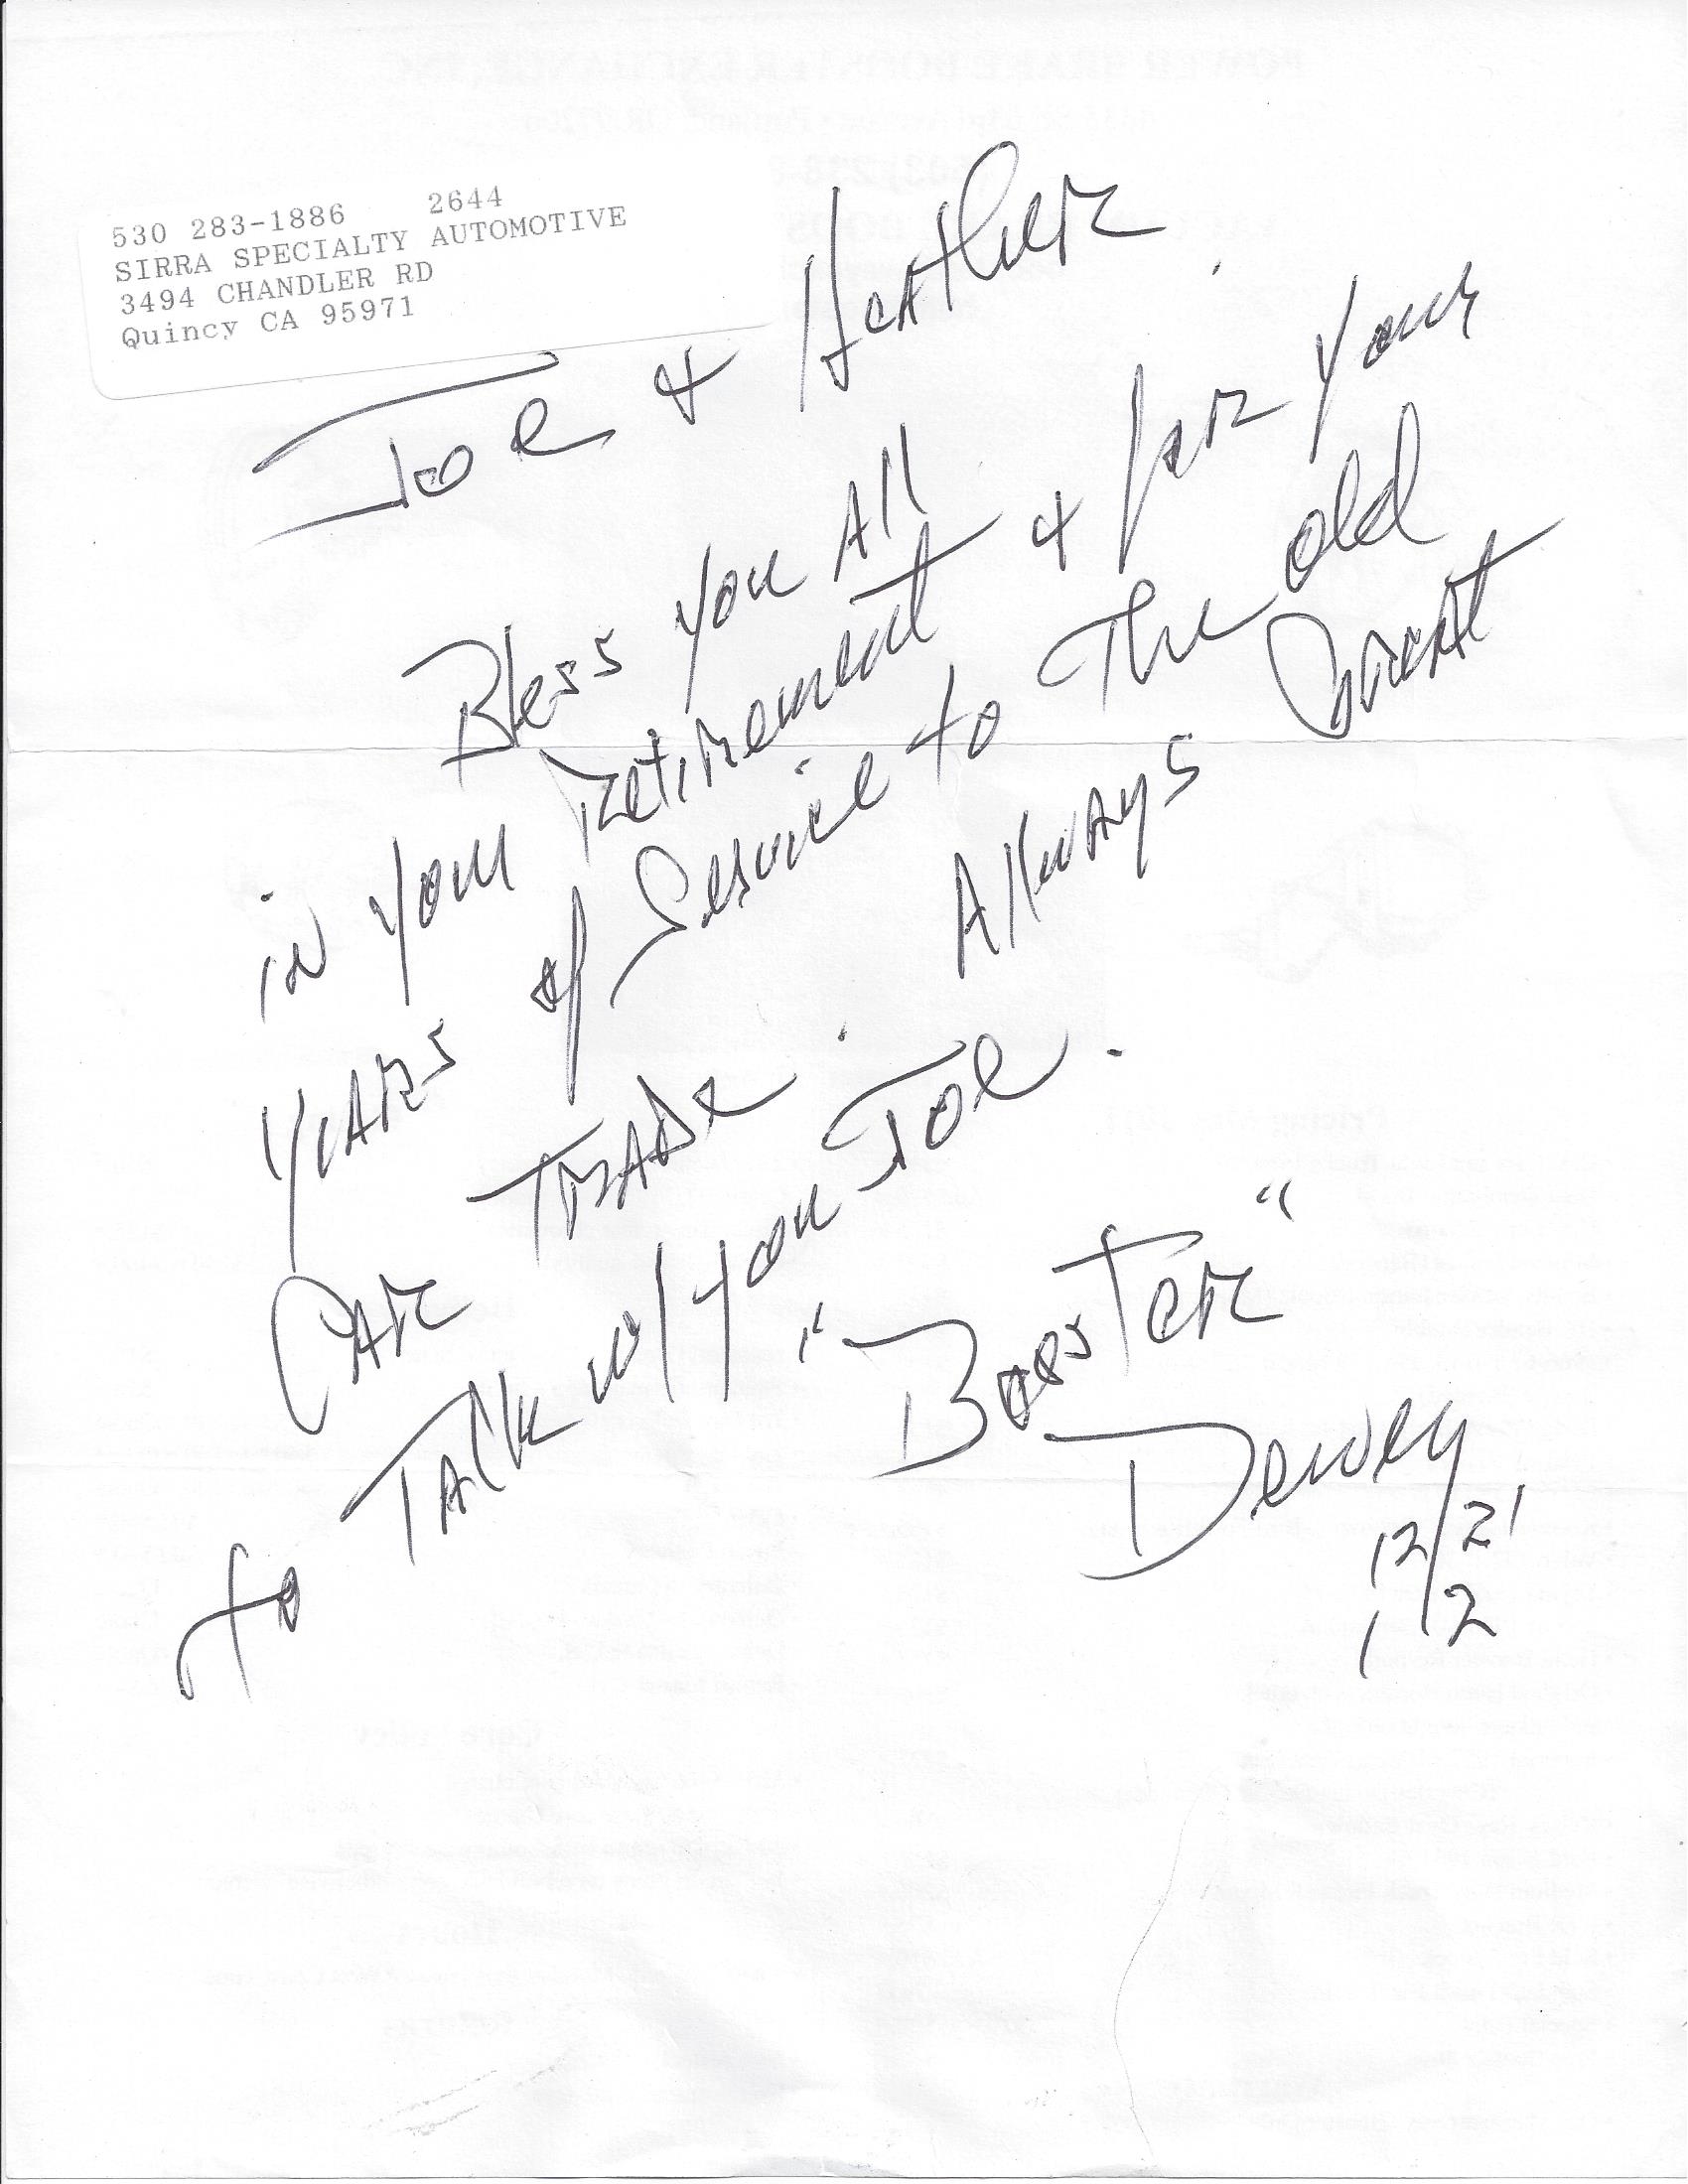 530 283-1886 2644
SIRRA SPECIALTY AUTOMOTIVE
3494 CHANDLER RD
Quincy CA 95971
Joe & Heather
Bless you All
in your Retirement & for your
years of Service to The old
Car Trade. Allways Great
to Talk w/ you Joe.
"Booster"
Dewey
12/21
1/2